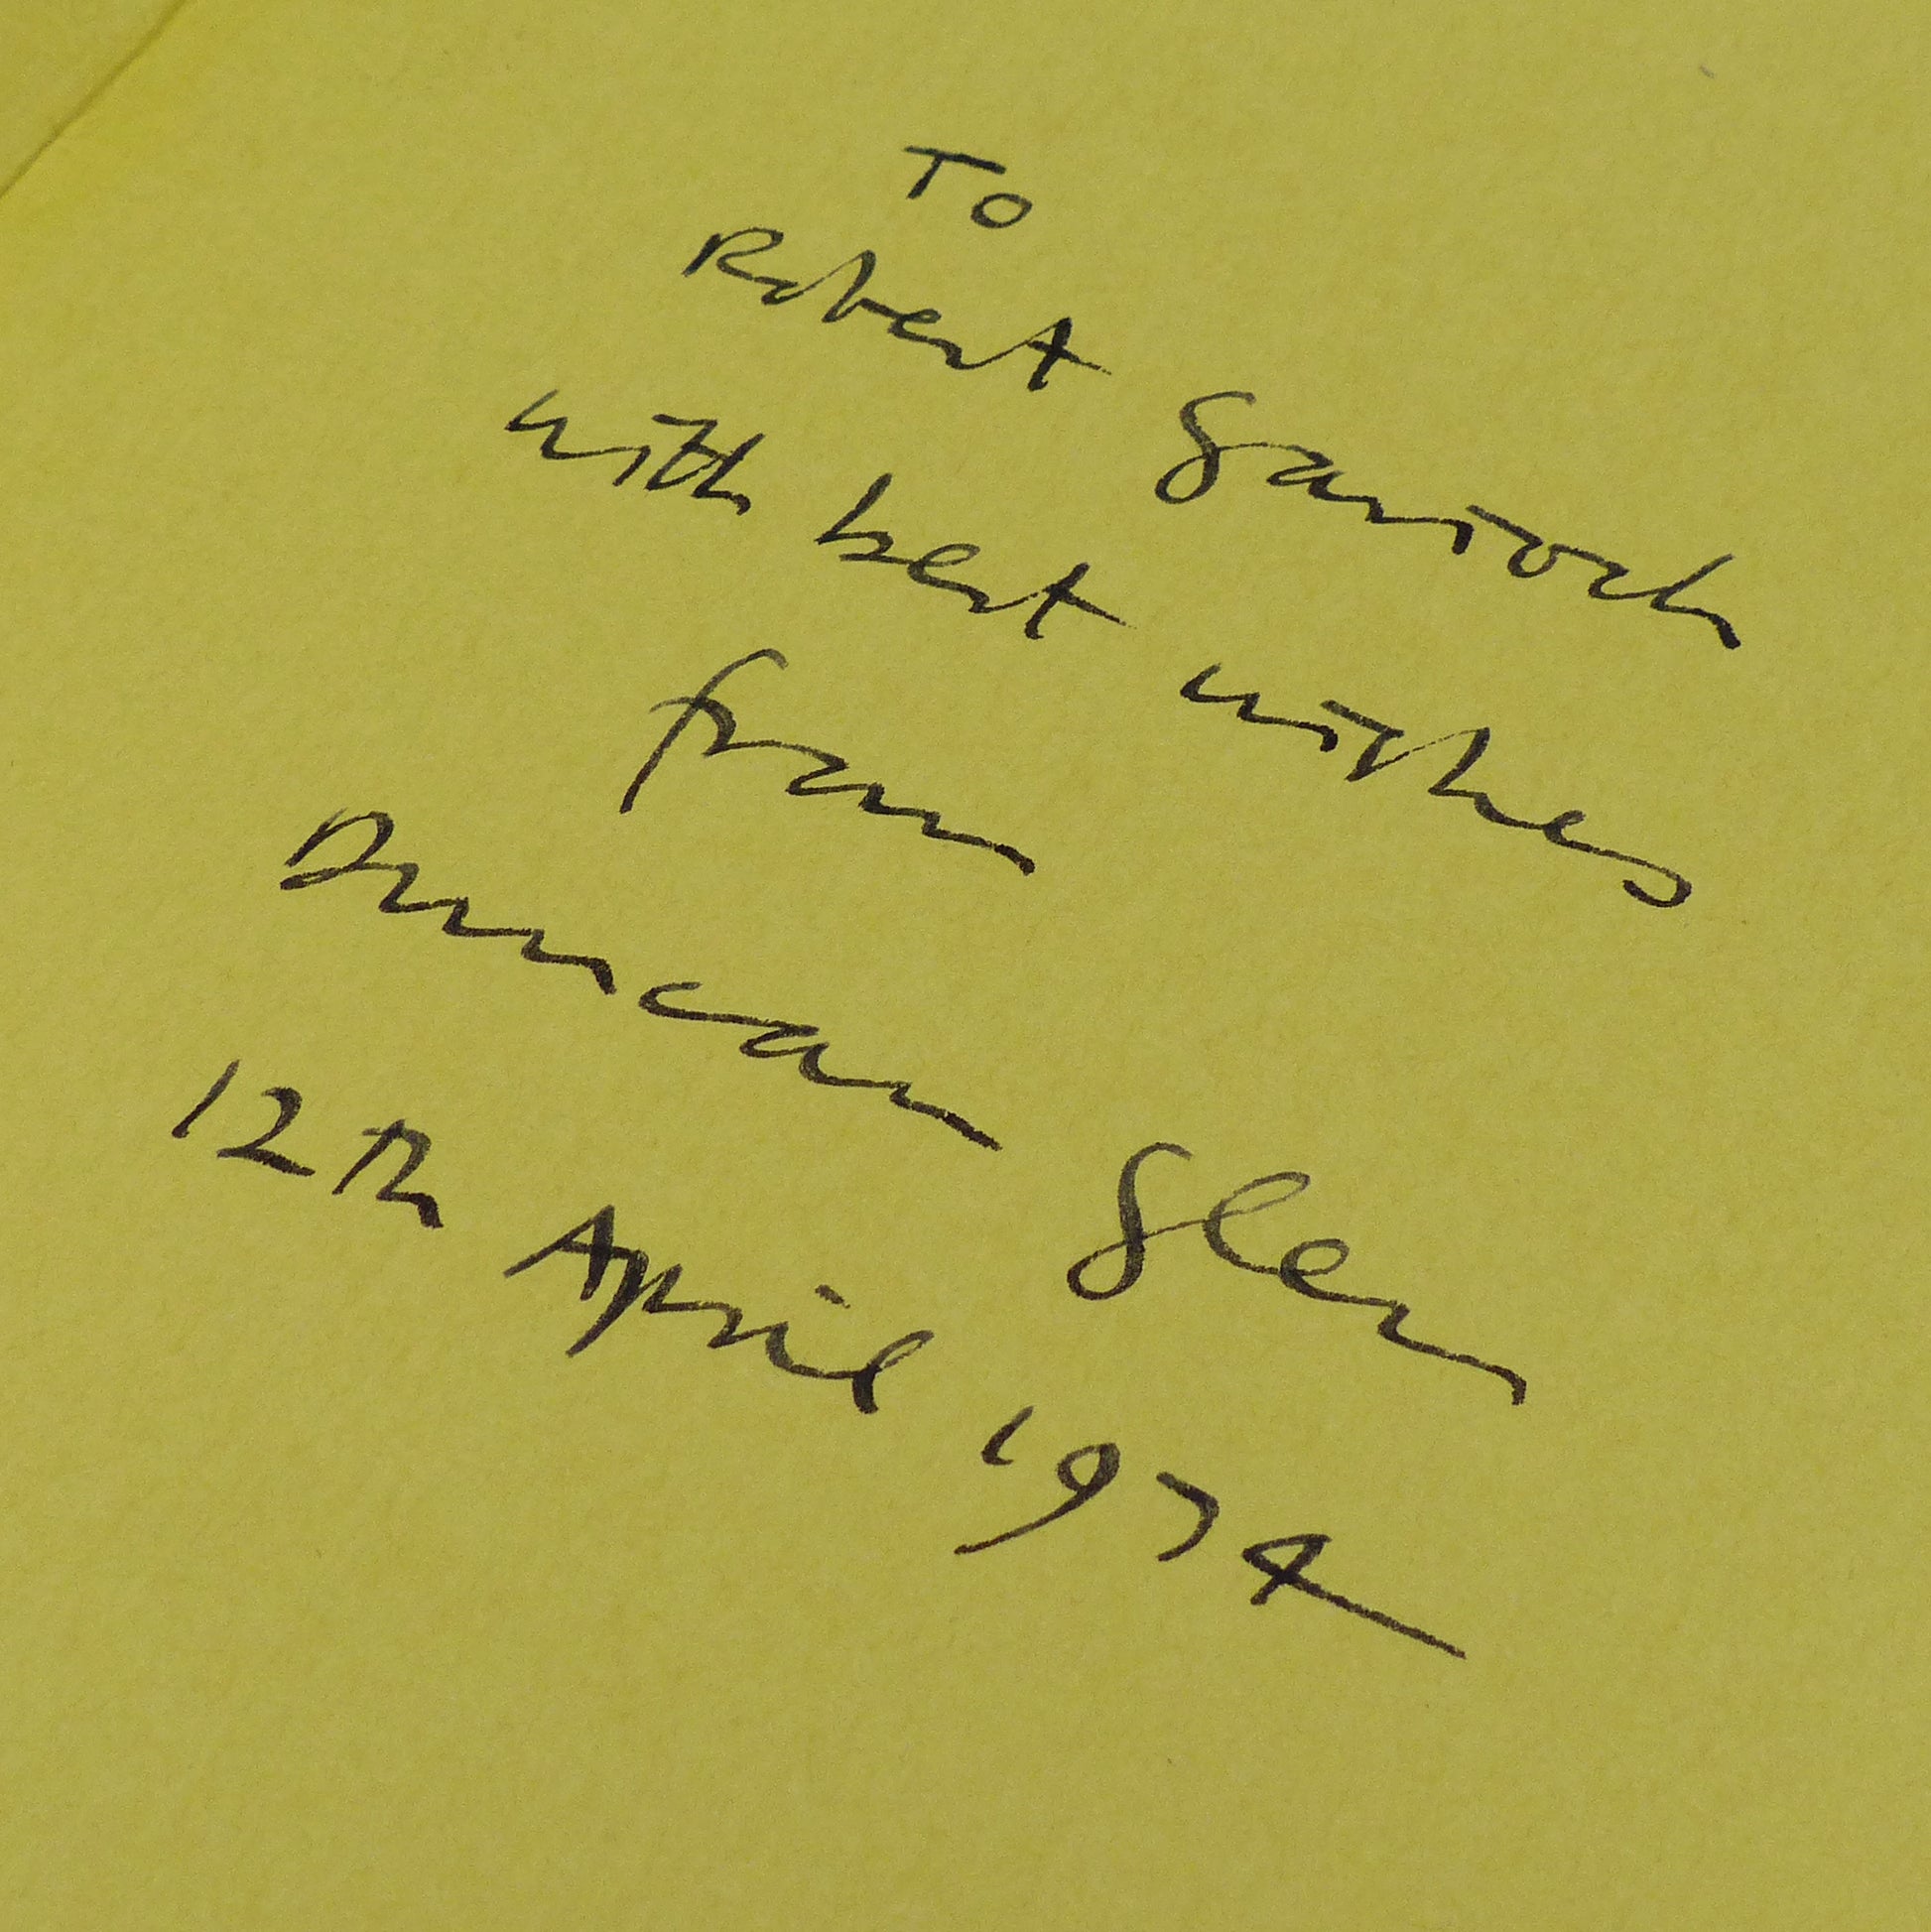 To
Robert Garioch
with best wishes
from
Duncan Glen
12th April 1974